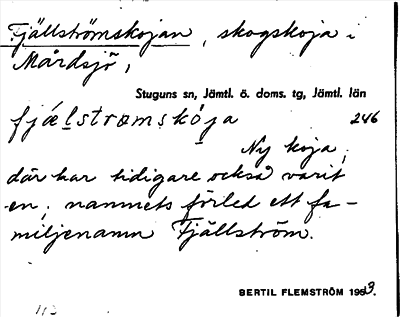 Fjällströmskojan, skogskoja i
Mårdsjö,
Stuguns sn, Jämtl. ö. doms. tg, Jämtl. län
fjælstrømskója 246
Ny koja;
där har tidigare också varit
en; namnets förled ett fa-
miljenamn Fjällström.
BERTIL FLEMSTRÖM 1963.